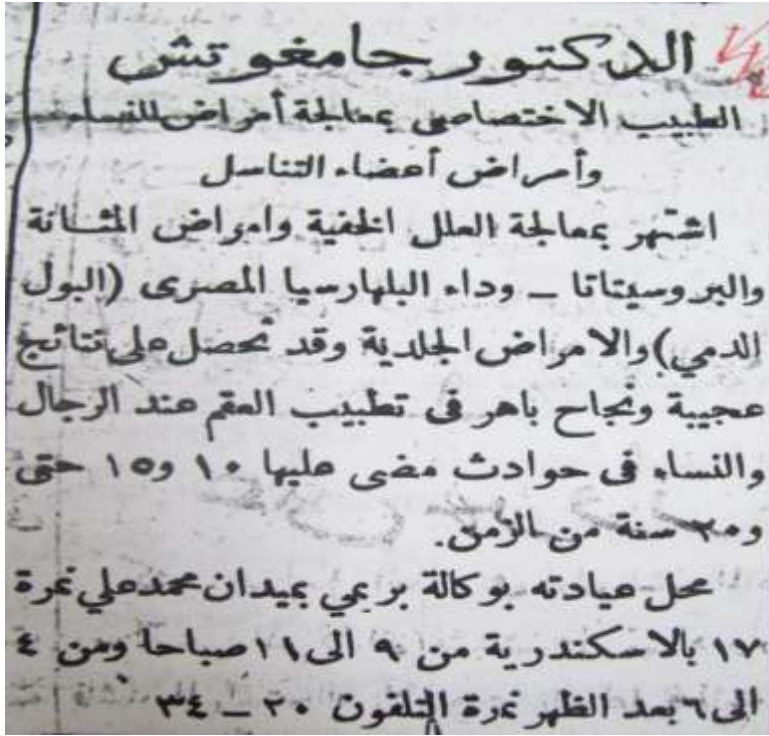 الدكتور جامغوتش
الطبيب الاختصاصي بمعالجة أمراض النساء
وأمراض أعضاء التناسل
اشتهر بمعالجة العلل الخفية وامراض المثانة
والبروسيتاتا ــ وداء البلهارسيا المصرى (البول
الدمي) والامراض الجلدية وقد تحصل على نتائج
عجيبة ونجاح باهر فى تطبيب العقم عند الرجال
والنساء فى حوادث مضى عليها ١٠ و١٥ حتى
و٢٠ سنة من الزمن.
محل عيادته بوكالة بريمي بميدان محمد علي نمرة
١٧ بالاسكندرية من ٩ الى ١١ صباحا ومن ٤
الى ٦ بعد الظهر نمرة التلفون ٢٠ ــ ٣٤